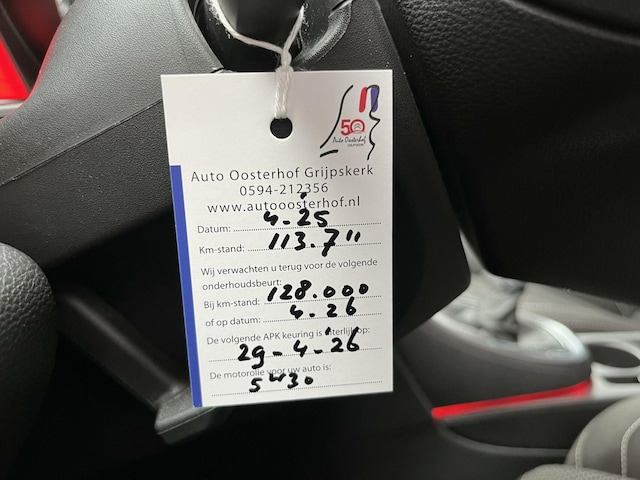 50
Auto Oosterhof
Auto Oosterhof Grijpskerk
0594-212356
www.autooosterhof.nl
Datum: 4.25
Km-stand: 113.7"
Wij verwachten u terug voor de volgende
onderhoudsbeurt:
Bij km-stand: 128.000
of op datum: 4.26
De volgende APK keuring is uiterlijk op:
29-4-26
De motorolie voor uw auto is:
5w30